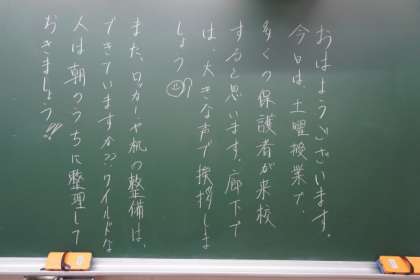 おはようございます。
今日は、土曜授業で、
多くの保護者が来校
すると思います。廊下で
は、大きな声で挨拶しま
しょう
また、ロッカーや机の整備は、
できていますか?? ワイルドな
人は朝のうちに整理して
おきましょう!!!